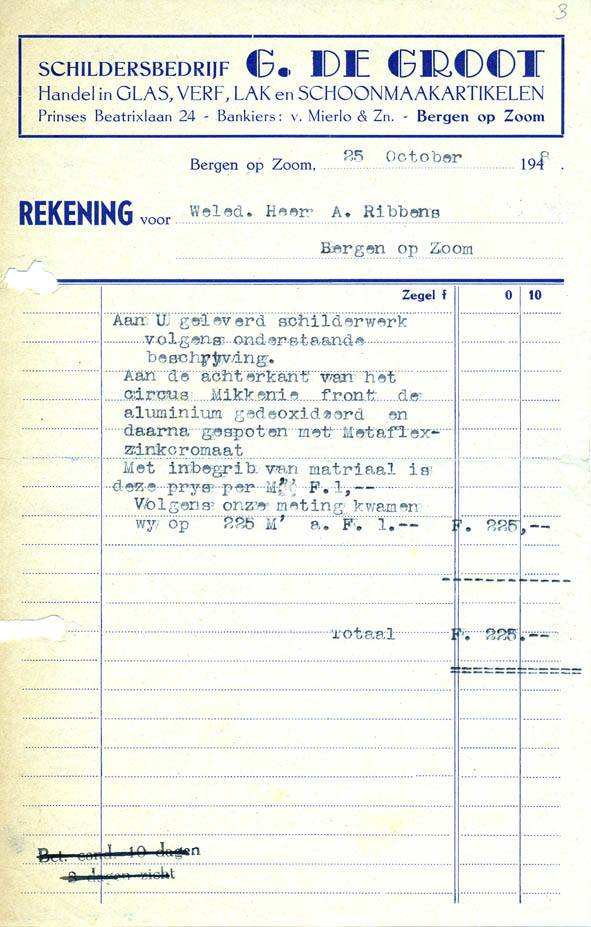 3
SCHILDERSBEDRIJF G. DE GROOT
Handel in GLAS, VERF, LAK en SCHOONMAAKARTIKELEN
Prinses Beatrixlaan 24 - Bankiers: v. Mierlo & Zn. - Bergen op Zoom
Bergen op Zoom, 25 October 1948.
REKENING voor Weled. Heer A. Ribbens
Bergen op Zoom
Zegel f 0 10
Aan U geleverd schilderwerk
volgens onderstaande
beschryving.
Aan de achterkant van het
circus Mikkenie front de
aluminium gedeoxideerd en
daarna gespoten met Metaflex-
zinkcromaat
Met inbegrib van matriaal is
deze prys per M" F.1,--
Volgens onze meting kwamen
wy op 225 M' a. F. 1.-- F. 225,--
Totaal F. 225.--
Bet. cond. 10 dagen
8 dagen zicht